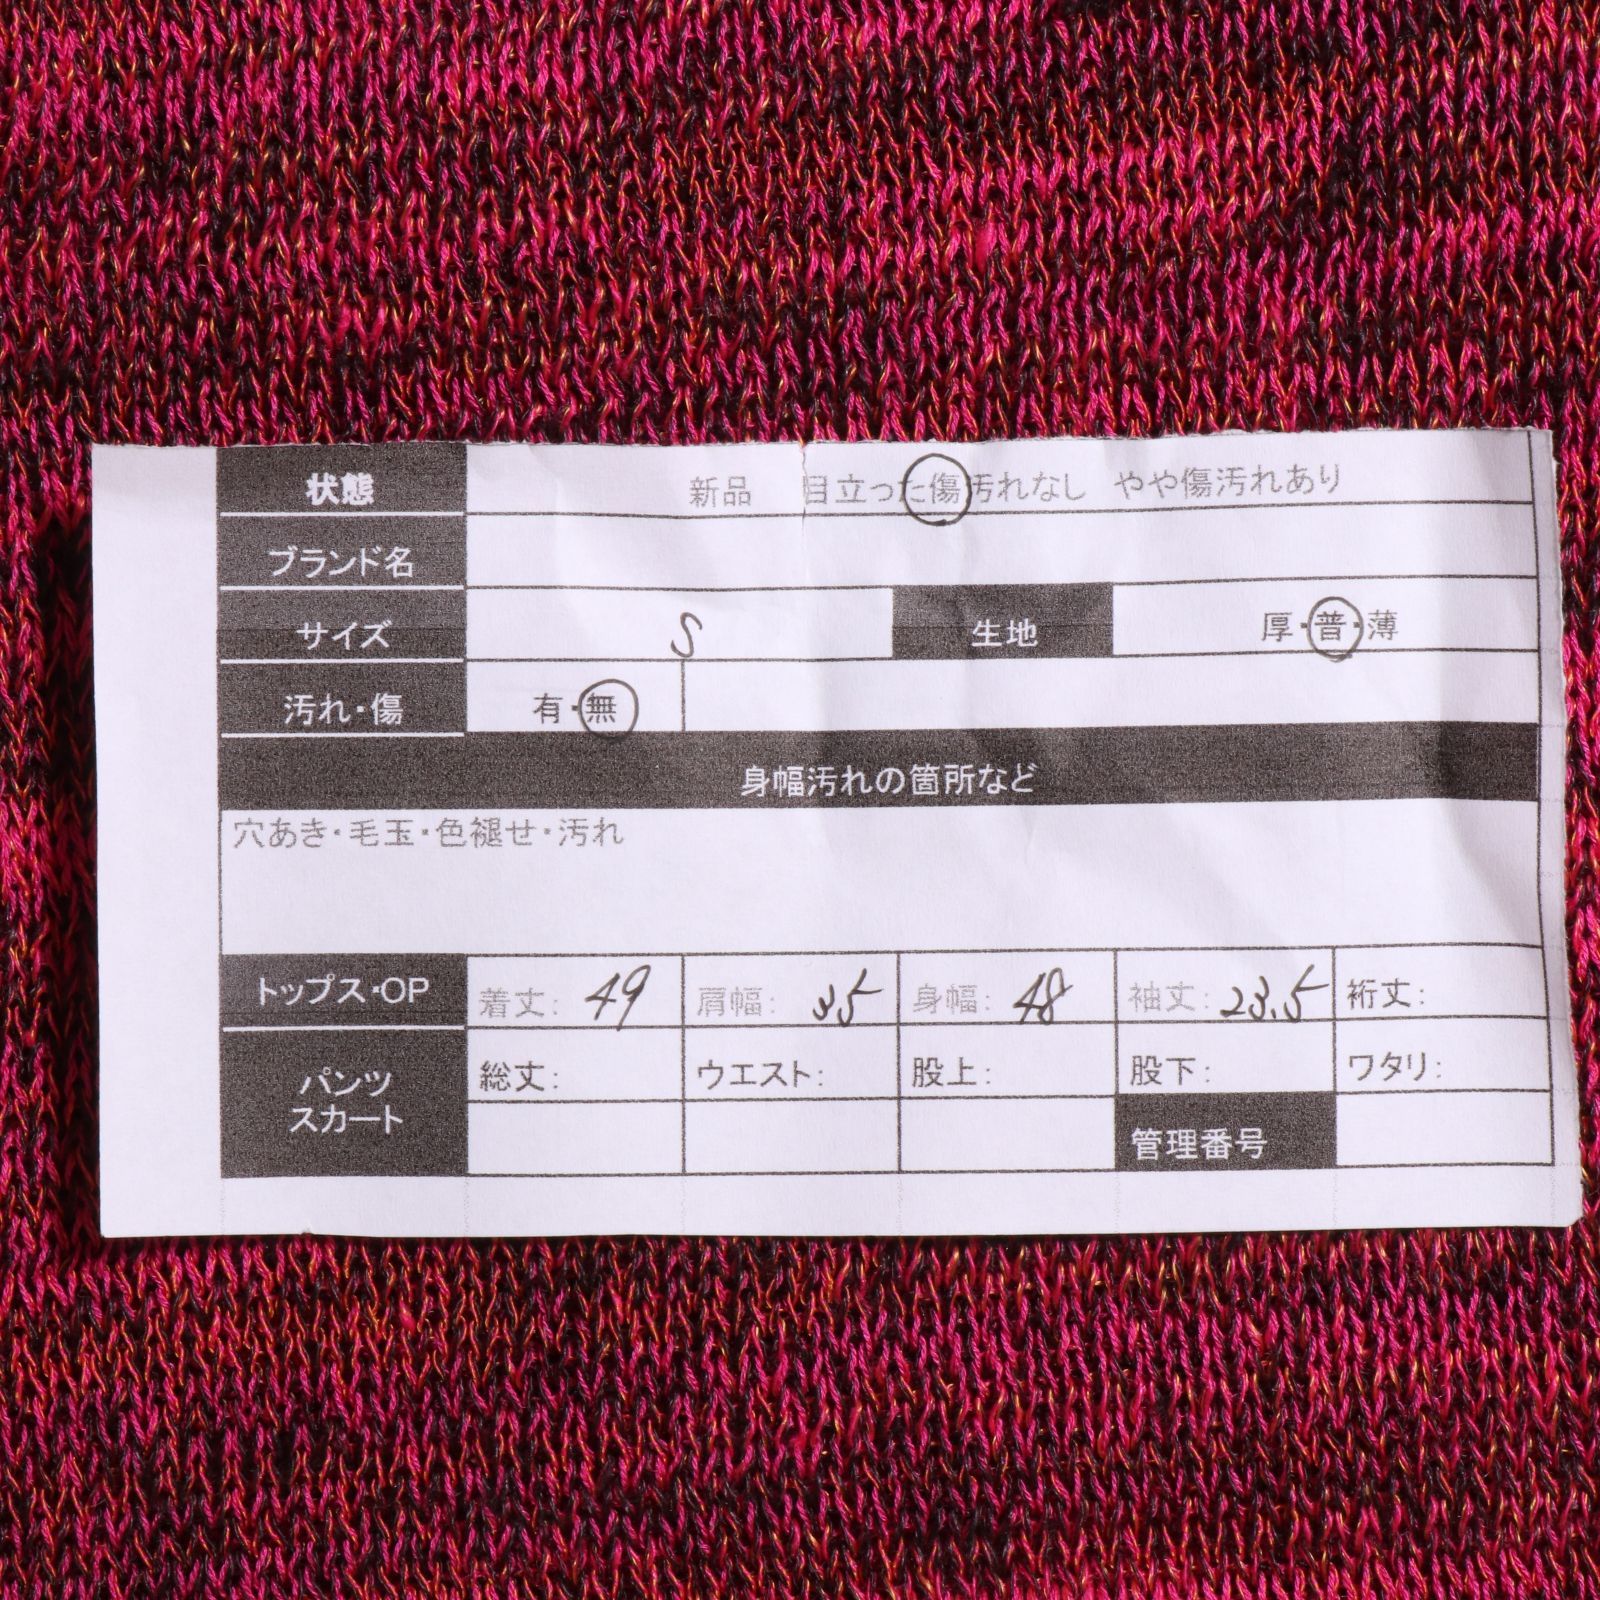 状態 新品 目立った傷汚れなし やや傷汚れあり
ブランド名
サイズ S 生地 厚・普・薄
汚れ・傷 有・無
身幅汚れの箇所など
穴あき・毛玉・色褪せ・汚れ
トップス・OP 着丈: 49 肩幅: 35 身幅: 48 袖丈: 23.5 裄丈:
パンツ 総丈: ウエスト: 股上: 股下: ワタリ:
スカート 管理番号